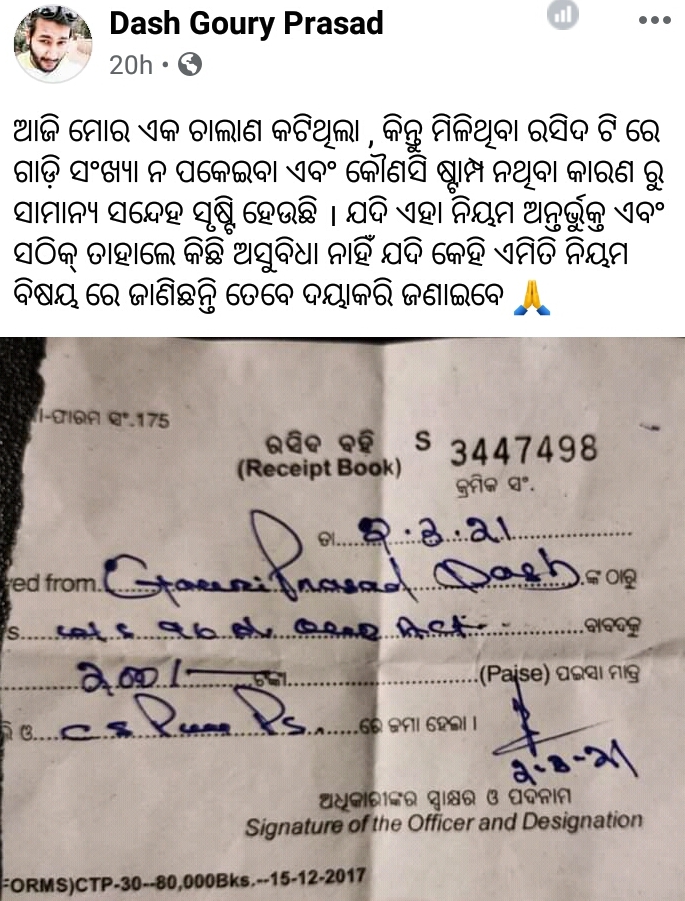 Dash Goury Prasad
20h
ଆଜି ମୋର ଏକ ଚାଲାଣ କଟିଥିଲା , କିନ୍ତୁ ମିଳିଥିବା ରସିଦ ଟି ରେ
ଗାଡ଼ି ସଂଖ୍ୟା ନ ପକେଇବା ଏବଂ କୌଣସି ଷ୍ଟାମ୍ପ ନଥିବା କାରଣ ରୁ
ସାମାନ୍ୟ ସନ୍ଦେହ ସୃଷ୍ଟି ହେଉଛି । ଯଦି ଏହା ନିୟମ ଅନ୍ତର୍ଭୁକ୍ତ ଏବଂ
ସଠିକ୍ ତାହାଲେ କିଛି ଅସୁବିଧା ନାହିଁ ଯଦି କେହି ଏମିତି ନିୟମ
ବିଷୟ ରେ ଜାଣିଛନ୍ତି ତେବେ ଦୟାକରି ଜଣାଇବେ 🙏
-ଫାରମ ସଂ.175
ରସିଦ ବହି S 3447498
(Receipt Book)
କ୍ରମିକ ସଂ.
ତା 2.3.21
ed from Gouri Prasad Dash ଙ୍କ ଠାରୁ
Act ବାବଦକୁ
200/- ଟଙ୍କା (Paise) ପଇସା ମାତ୍ର
ଓ Ps ରେ ଜମା ହେଲା ।
2-3-21
ଅଧିକାରୀଙ୍କର ସ୍ୱାକ୍ଷର ଓ ପଦନାମ
Signature of the Officer and Designation
FORMS)CTP-30--80,000Bks.--15-12-2017